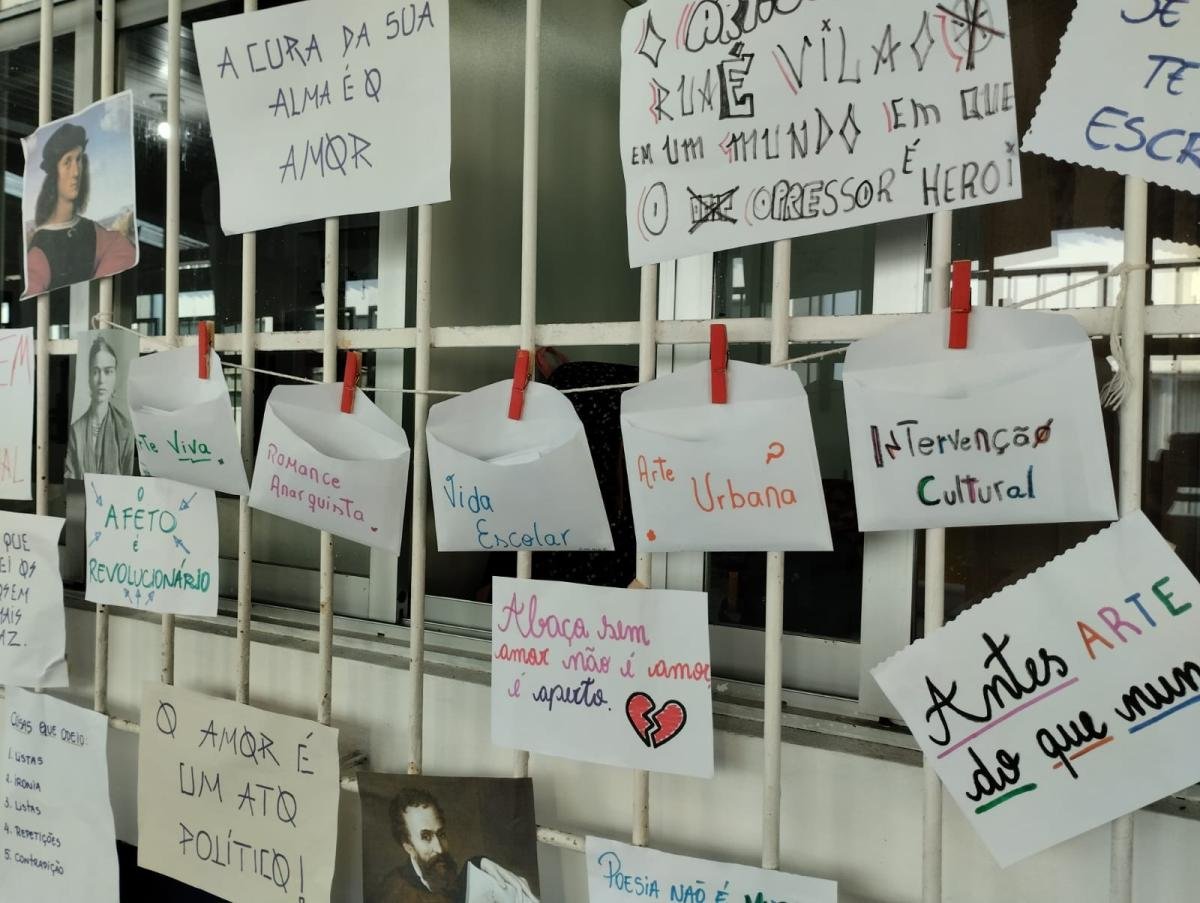 A CURA DA SUA
ALMA É O
AMOR
RUA É VILÃO
EM UM MUNDO EM QUE
O OPRESSOR É HEROI
SE
TE
Arte Viva.
Romance
Anarquista.
Vida
Escolar
Arte
Urbana
INTervenção
Cultural
O
AFETO
é
REVOLUCIONÁRIO
QUE
Abaço sem
amor não é amor
é aperto.
Antes ARTE
do que
COISAS QUE ODEIO:
1. LISTAS
2. IRONIA
3. LISTAS
4. REPETIÇÕES
5. CONTRADIÇÃO
O AMOR É
UM ATO
POLÍTICO!
POESIA NÃO É